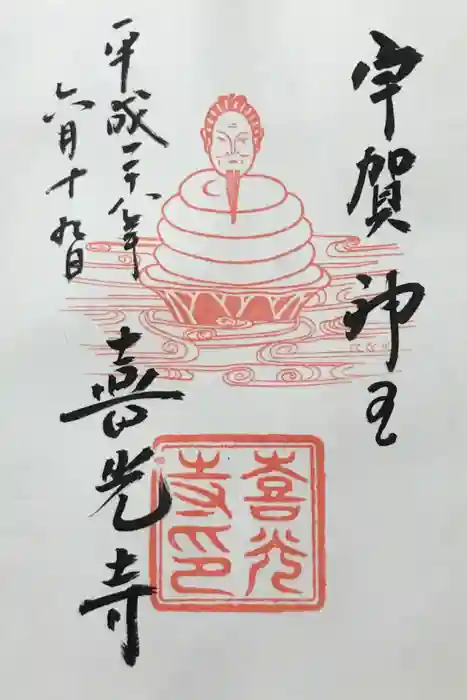 宇賀神王
平成二十八年
六月十九日
喜光寺
喜光
寺印